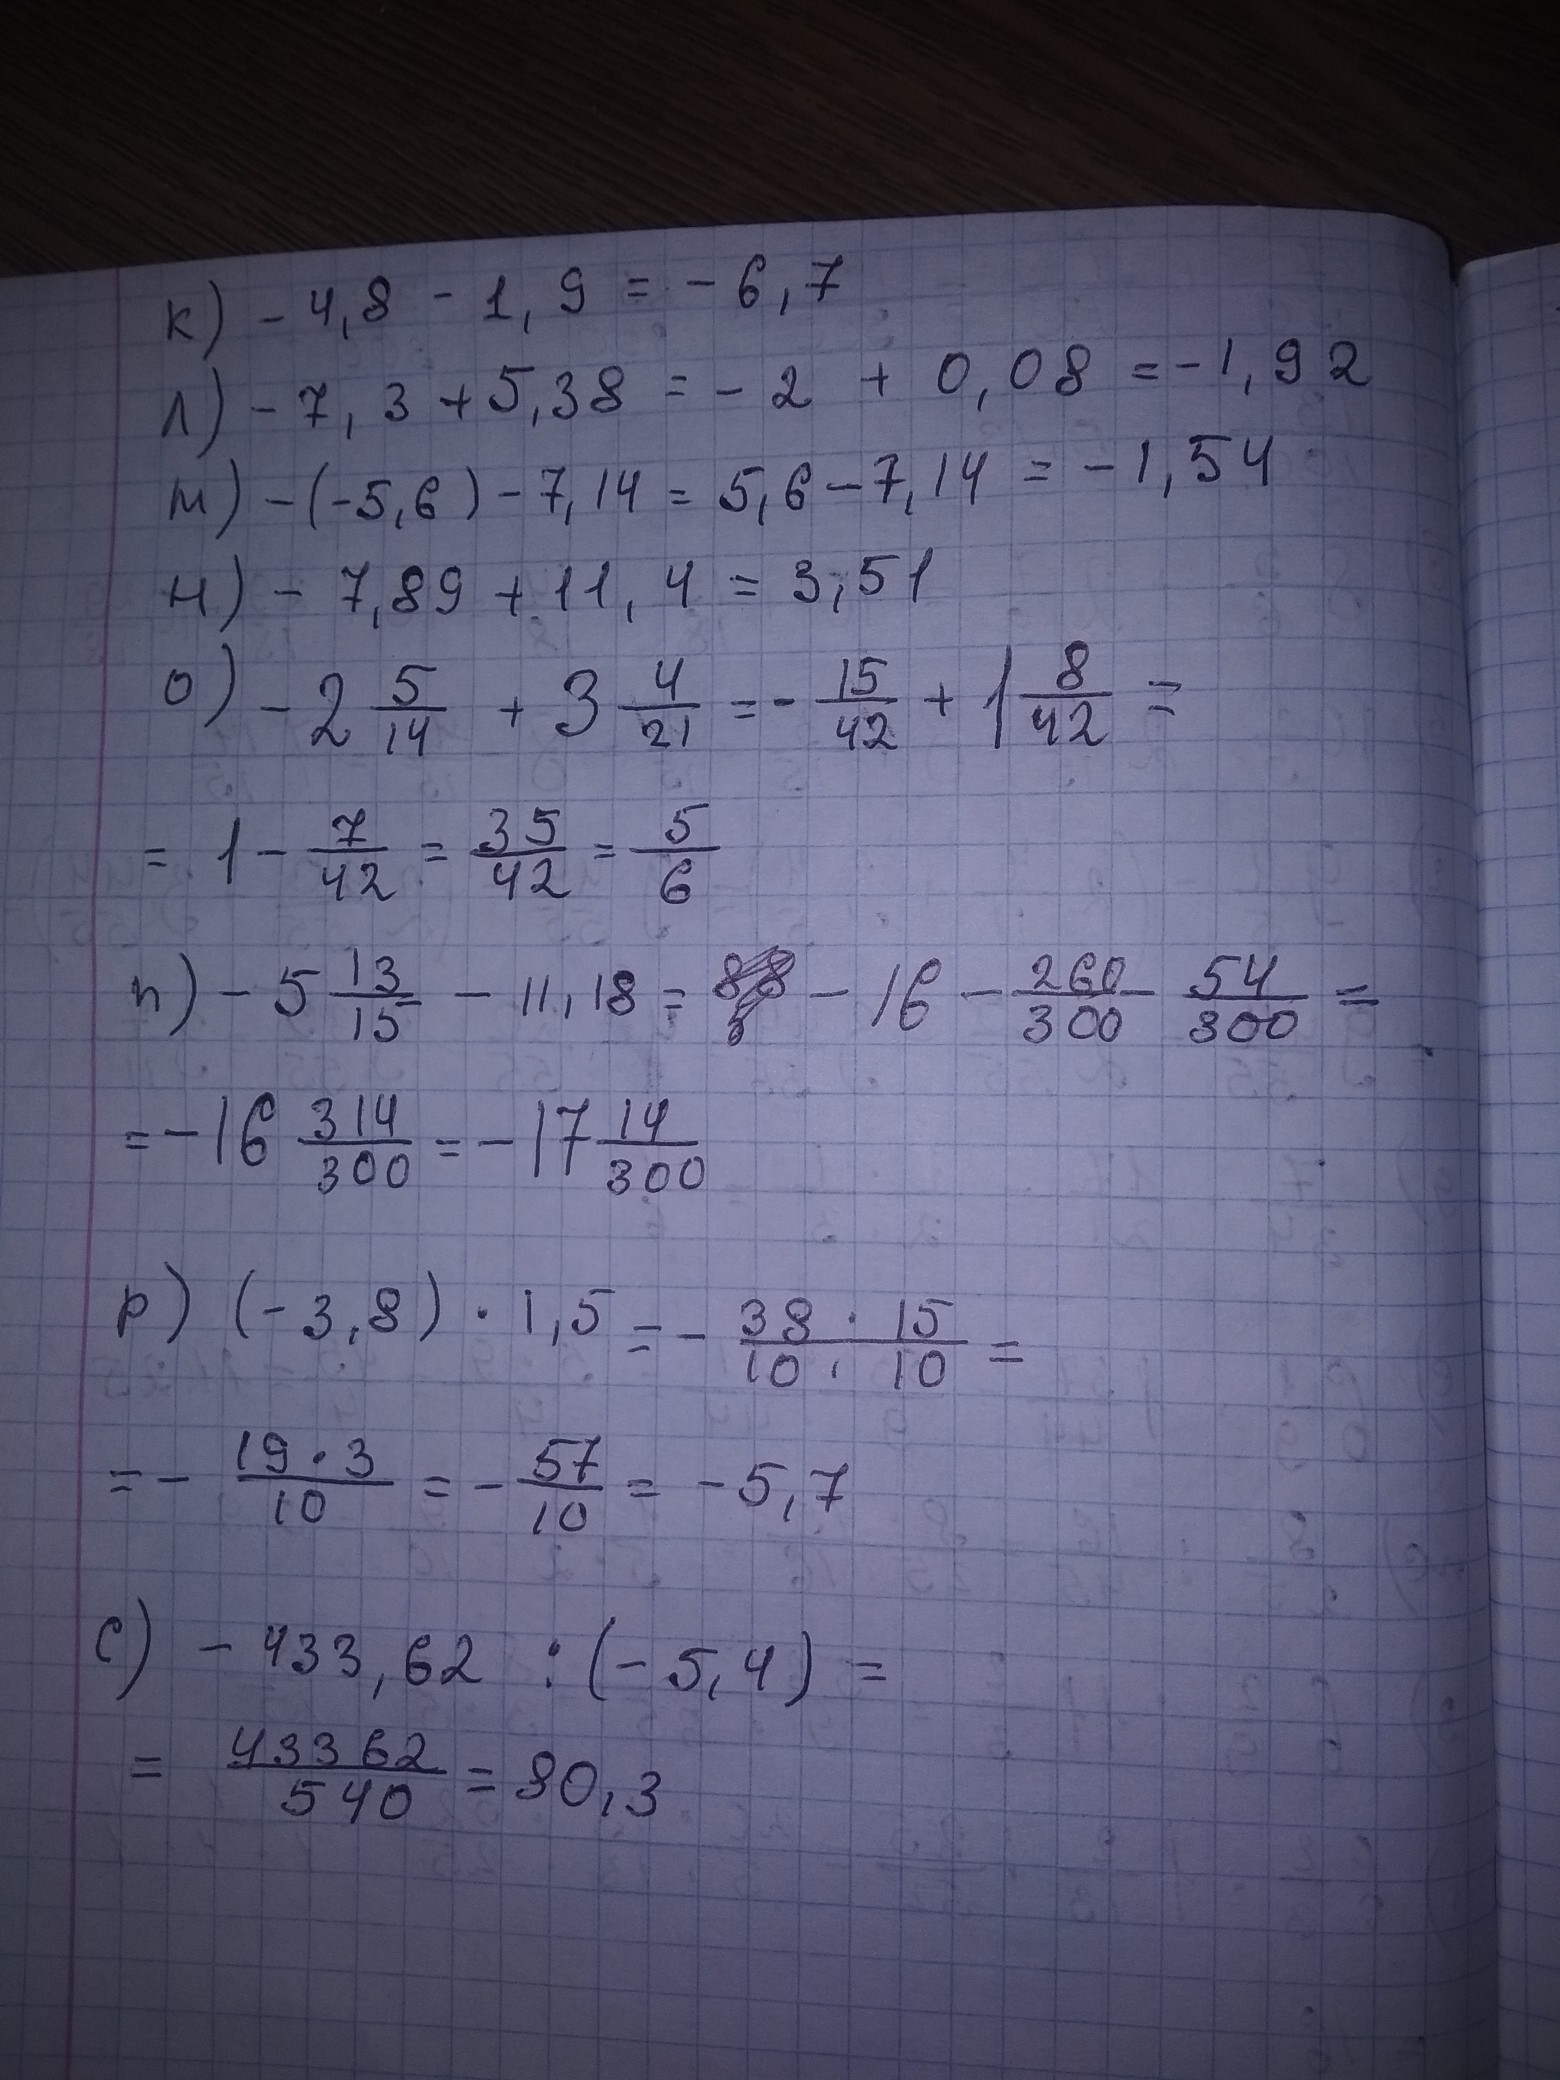 к) - 4,8 - 1,9 = - 6,7
л) - 7,3 + 5,38 = - 2 + 0,08 = - 1,92
м) - (-5,6) - 7,14 = 5,6 - 7,14 = - 1,54
н) - 7,89 + 11,4 = 3,51
о) - 2 5/14 + 3 4/21 = - 15/42 + 1 8/42 =
= 1 - 7/42 = 35/42 = 5/6
п) - 5 13/15 - 11,18 = - 16 - 260/300 - 54/300 =
= - 16 314/300 = - 17 14/300
р) (- 3,8) · 1,5 = - 38 · 15/10 · 10 =
= - 19 · 3/10 = - 57/10 = - 5,7
с) - 433,62 : (- 5,4) =
= 43362/540 = 80,3